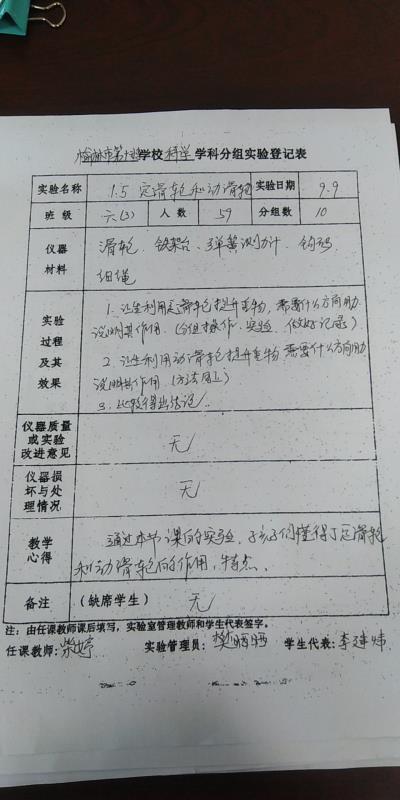 榆林市第十二学校 科学 学科分组实验登记表
实验名称 1.5 定滑轮和动滑轮 实验日期 9.9
班 级 六(3) 人 数 59 分组数 10
仪器材料 滑轮、铁架台、弹簧测力计、钩码
细绳
实验过程及其效果 1、让生利用定滑轮提升重物,需要什么方向助
说明其作用.(分组操作.实验.做好记录)
2、让生利用动滑轮提升重物 需要什么方向助
说明其作用.(方法同上)
3、比较得出结论.
仪器质量或实验改进意见 无
仪器损坏与处理情况 无
教学心得 通过本节课的实验,孩子们懂得了定滑轮
和动滑轮的作用、特点.
备注 (缺席学生) 无
注:由任课教师课后填写,实验室管理教师和学生代表签字。
任课教师:柴婷 实验管理员:樊晒晒 学生代表:李建炜